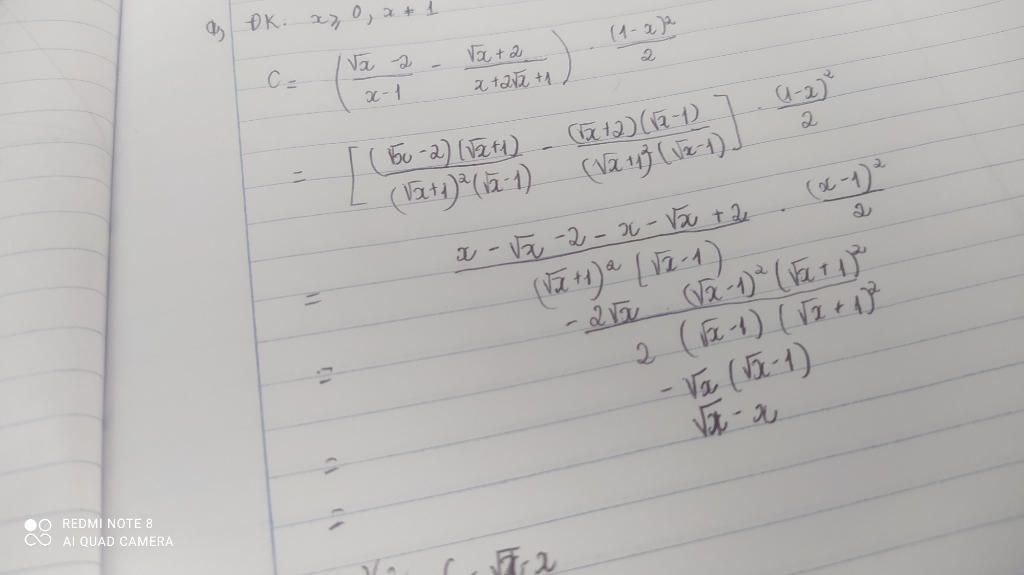 a, ĐK: x ≥ 0, x ≠ 1
C = ( (√x - 2)/(x - 1) - (√x + 2)/(x + 2√x + 1) ) · (1 - x)²/2
= [ (√x - 2)(√x + 1)/((√x + 1)²(√x - 1)) - (√x + 2)(√x - 1)/((√x + 1)²(√x - 1)) ] · (1 - x)²/2
= (x - √x - 2 - x - √x + 2)/((√x + 1)²(√x - 1)) · (x - 1)²/2
= (- 2√x · (√x - 1)²(√x + 1)²)/(2 (√x - 1)(√x + 1)²)
= - √x (√x - 1)
= √x - x
REDMI NOTE 8
AI QUAD CAMERA